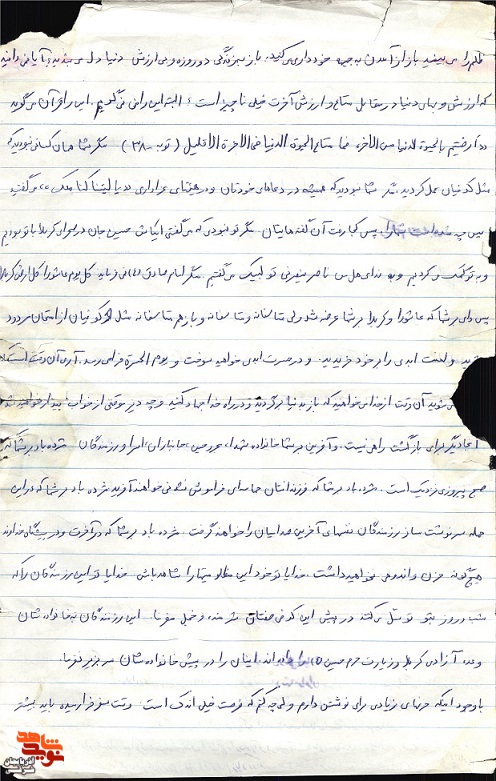 ظلم را می بینید باز از آمدن به جبهه خودداری می کنید، باز به زندگی دو روزه و بی ارزش دنیا دل می بندید، آیا نمی دانید
که ارزش و بهای دنیا در مقابل متاع و ارزش آخرت خیلی ناچیز است، البته این را من نمی گویم. این را قرآن می گوید
ارضیتم بالحیوة الدنیا من الاخره، فما متاع الحیوة الدنیا فی الاخرة الا قلیل (توبه - ۳۸) مگر شما همان کسانی نبودید که
مثل کوفیان عمل کردید، مگر شما نبودید که همیشه در دعاهای خودتان و در هیئتهای عزاداری دم یا لیتنا کنا معک، می گفتید
پس چه شد، پس کجا رفت آن گفته هایتان. مگر تو نبودی که می گفتی ایکاش حسین جان در صحرای کربلا با تو بودیم
و به تو کمک می کردیم و به ندای هل من ناصر ینصرنی تو لبیک می گفتیم مگر امام صادق (ع) نمی فرماید کل یوم عاشورا کل ارض کربلا
پس وای بر شما که عاشورا و کربلا بر شما عرضه شد ولی متاسفانه و متاسفانه و باز هم متاسفانه مثل کوفیان از امتحان مردود
شدید و لعنت ابدی را بر خود خریدید. و در حسرت ابدی خواهید سوخت و یوم الحسرة فرا می رسد. آری آن وقت است که
می شوید آن وقت از خدا می خواهید که باز به دنیا برگردید و در راه خدا جهاد کنید و چه دیر موقعی از خواب بیدار خواهید شد
اما دیگر برای بازگشت راهی نیست. و آفرین بر شما خانواده شهدا، مجروحین، جانبازان، اسرا و رزمندگان مژده باد بر شما که
صبح پیروزی نزدیک است. مژده باد بر شما که فرزندانتان حماسه ای فراموش نشدنی خواهند آفرید مژده باد بر شما که در این
حمله سرنوشت ساز رزمندگان نفسهای آخرین صدامیان را خواهند گرفت. مژده باد بر شما که در آخرت و در پیشگاه خداوند
هیچگونه حزن و اندوهی نخواهید داشت. خدایا تو خود این مظلومیتها را شاهد باش. خدایا تو این رزمندگان را که
شب و روز بتو توسل می کنند در پیش این کوفی صفتان شرمنده و خجل مفرما. این رزمندگان به خانواده شان
وعده آزادی کربلا و زیارت حرم حسین (ع) را داده اند. اینان را در پیش خانواده شان سربزیر مفرما
با وجود اینکه حرفهای زیادی برای نوشتن دارم ولی چه کنم که فرصت خیلی اندک است. وقت سفر فرا رسیده باید بیشتر
نوید شاهد